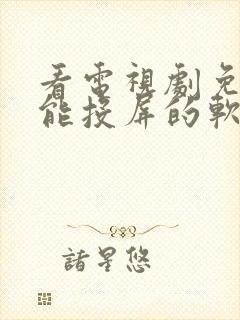 看電視劇免
能投屏的軟
諸星悠